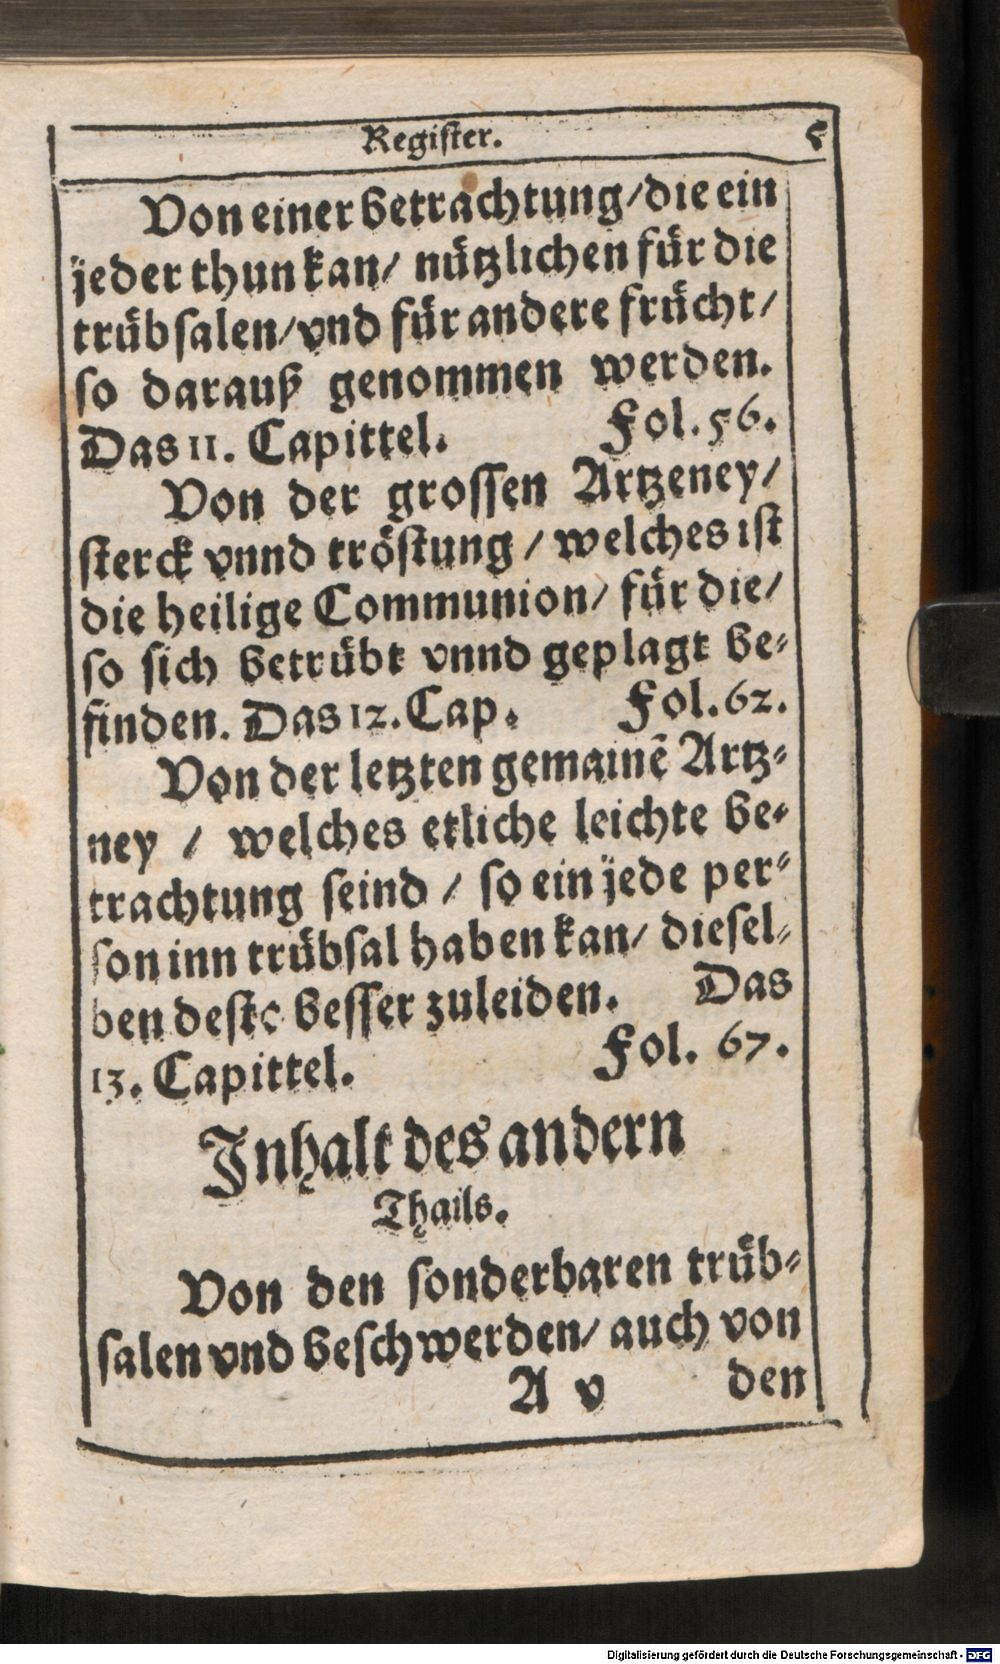 Register. 5
Von einer betrachtung/die ein
jeder thun kan/ nützlichen für die
trübsalen/vnd für andere frücht/
so darauß genommen werden.
Das 11. Capittel. Fol. 56.
Von der grossen Artzeney/
sterck vnnd tröstung / welches ist
die heilige Communion/ für die/
so sich betrübt vnnd geplagt be-
finden. Das 12. Cap. Fol. 62.
Von der letzten gemainẽ Artz-
ney / welches etliche leichte be-
trachtung seind / so ein jede per-
son inn trübsal haben kan/ diesel-
ben desto besser zuleiden. Das
13. Capittel. Fol. 67.
Inhalt des andern
Thails.
Von den sonderbaren trüb-
salen vnd beschwerden/ auch von
A v den
Digitalisierung gefördert durch die Deutsche Forschungsgemeinschaft - DFG